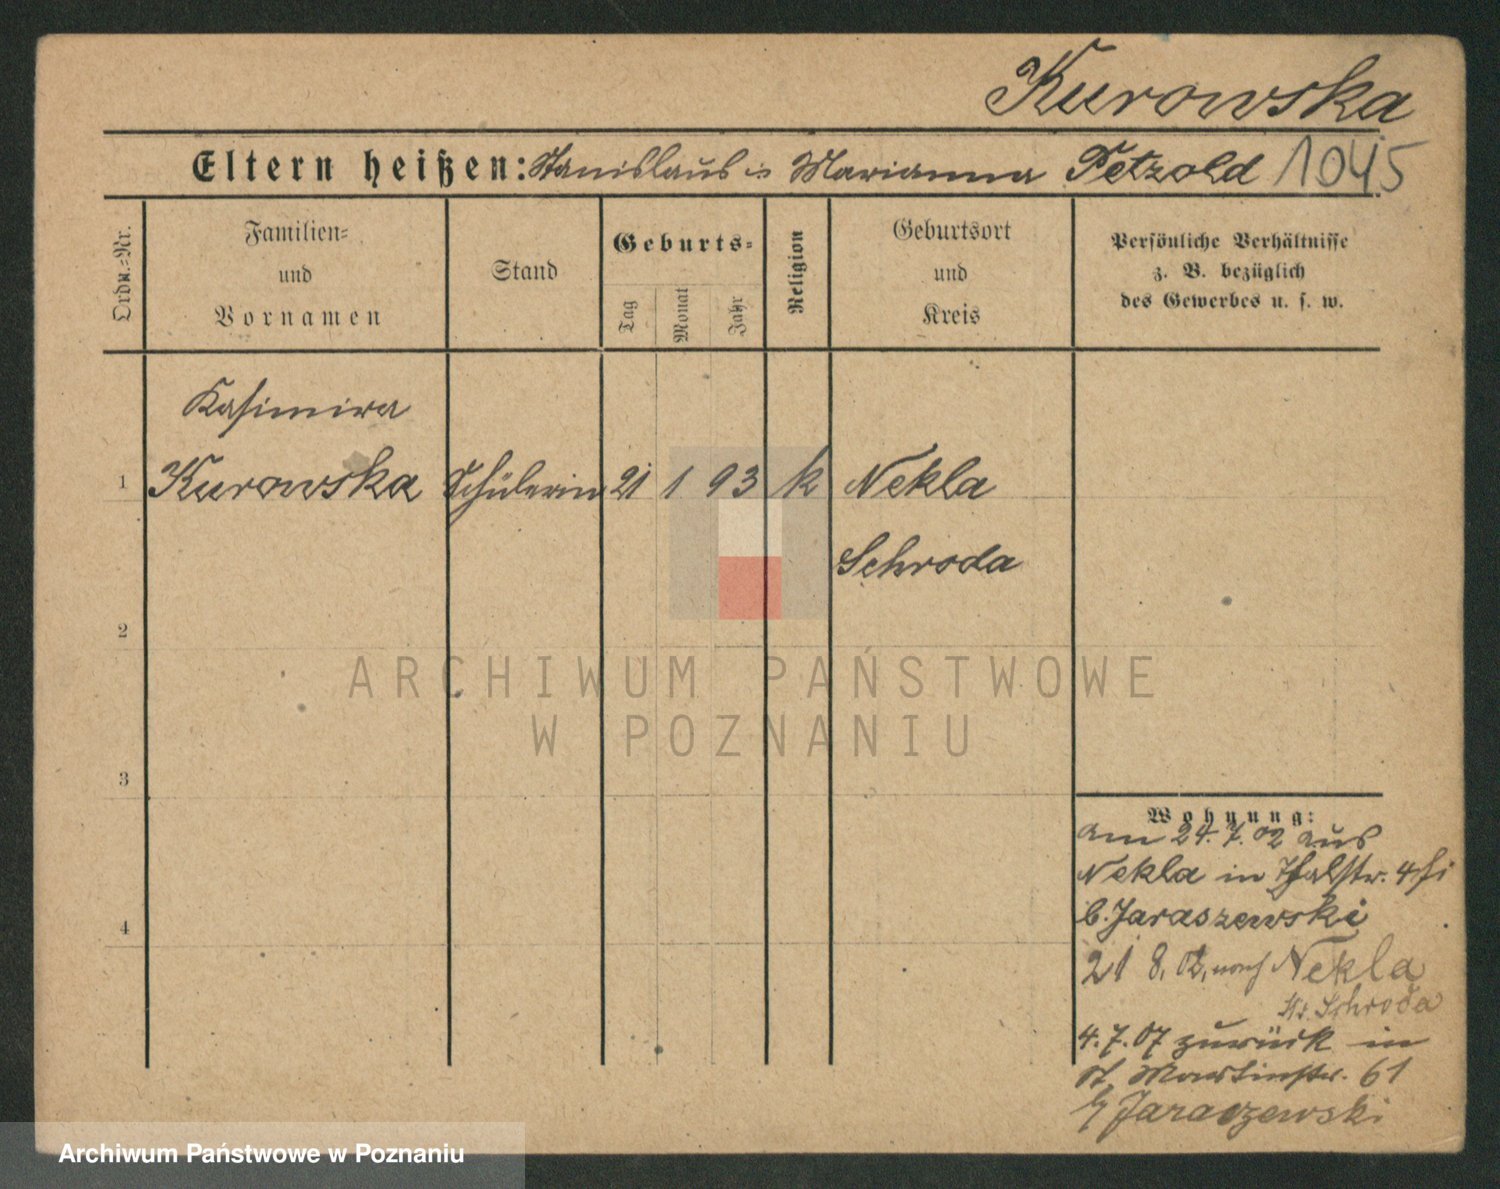 Kurowska
Eltern heißen: Stanislaus u Marianna Petzold 1045
Ordn.-Nr.
Familien-
und
Vornamen
Stand
Geburts-
Tag
Monat
Jahr
Religion
Geburtsort
und
Kreis
Persönliche Verhältnisse
z. B. bezüglich
des Gewerbes u. s. w.
Kasimira
1 Kurowska Schülerin 21 1 93 k Nekla
Schroda
2
3
4
Wohnung:
am 24.7.02 aus
Nekla in Thalstr. 4
b. Jaraszewski
21 8. 02, nach Nekla
Kr. Schroda
4.7.07 zurück in
St. Martinstr. 61
Jaraczewski
ARCHIWUM PAŃSTWOWE
W POZNANIU
Archiwum Państwowe w Poznaniu